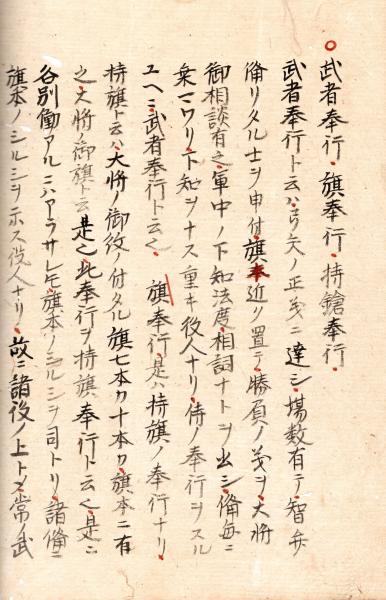 ○武者奉行・旗奉行・持鎗奉行・
武者奉行ト云ハ弓矢ノ正義ニ達シ場数有テ智弁
備リタル士ヲ申付旗本近ク置テ勝負ノ義ヲ大将
御相談有之軍中ノ下知法度相詞ナトヲ出シ備毎ニ
乗マワリ下知ヲナス重キ役人ナリ侍ノ奉行ヲスル
ユヘニ武者奉行ト云也 旗奉行是ハ持旗ノ奉行ナリ
持旗ト云ハ大将ノ御紋ノ付タル旗七本カ十本カ旗本ニ有
之大将御旗ト云是也此奉行ヲ持旗奉行ト云也是ニ
各別働アルニハアラサレ𪜈旗本ノシルシヲ司トリ諸備ニ
旗本ノシルシヲ示ス役人ナリ故ニ諸役ノ上トメ常ノ武